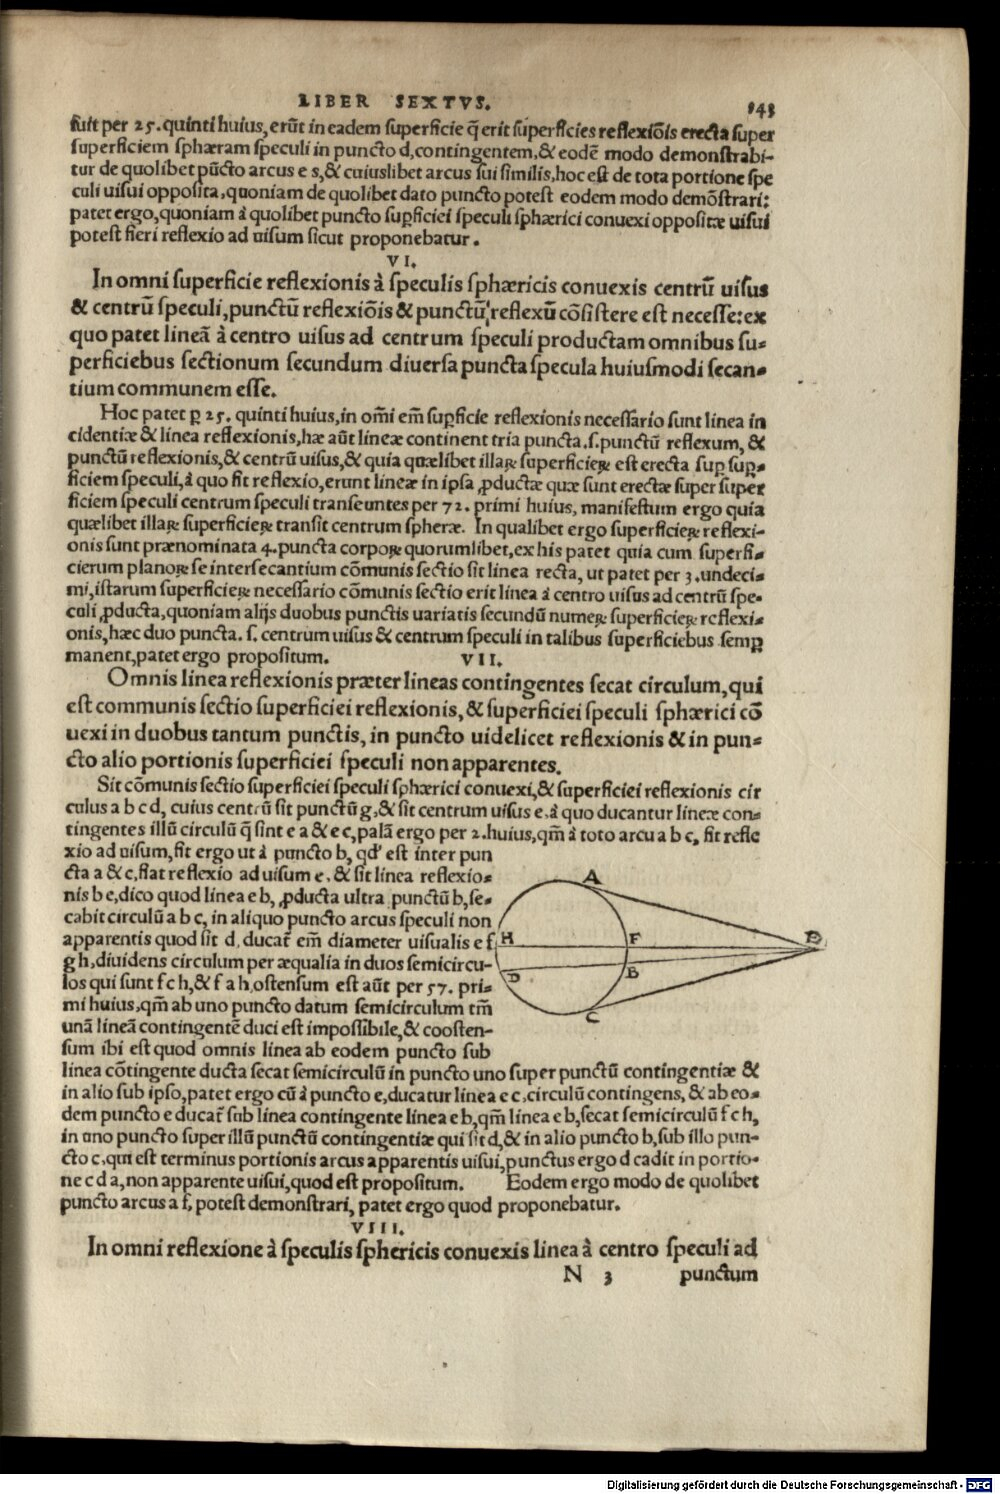 LIBER SEXTVS. 143
fuit per 25. quinti huius, erũt in eadem superficie q̃ erit superficies reflexiõis erecta super
superficiem sphæram speculi in puncto d, contingentem, & eodẽ modo demonstrabi-
tur de quolibet pũcto arcus e s, & cuiuslibet arcus sui similis, hoc est de tota portione spe
culi uisui opposita, quoniam de quolibet dato puncto potest eodem modo demõstrari:
patet ergo, quoniam à quolibet puncto sup̱ficiei speculi sphærici conuexi oppositæ uisui
potest fieri reflexio ad uisum sicut proponebatur.
VI.
In omni superficie reflexionis à speculis sphæricis conuexis centrũ uisus
& centrũ speculi, punctũ reflexiõis & punctũ reflexũ cõsistere est necesse: ex
quo patet lineã à centro uisus ad centrum speculi productam omnibus su-
perficiebus sectionum secundum diuersa puncta specula huiusmodi secan-
tium communem esse.
Hoc patet p̱ 25. quinti huius, in om̃i em̃ sup̱ficie reflexionis necessario sunt linea in
cidentiæ & linea reflexionis, hæ aũt lineæ continent tria puncta .s. punctũ reflexum, &
punctũ reflexionis, & centrũ uisus, & quia quælibet illaꝝ superficieꝝ est erecta sup̱ sup̱-
ficiem speculi, à quo fit reflexio, erunt lineæ in ipsa ꝓductæ quæ sunt erectæ super super
ficiem speculi centrum speculi transeuntes per 72. primi huius, manifestum ergo quia
quælibet illaꝝ superficieꝝ transit centrum spheræ. In qualibet ergo superficieꝝ reflexi-
onis sunt prænominata 4. puncta corpoꝝ quorumlibet, ex his patet quia cum superfi-
cierum planoꝝ se intersecantium cõmunis sectio sit linea recta, ut patet per 3. undeci-
mi, istarum superficieꝝ necessario cõmunis sectio erit linea à centro uisus ad centrũ spe-
culi ꝓducta, quoniam alijs duobus punctis uariatis secundũ numeꝝ superficieꝝ reflexi-
onis, hæc duo puncta .s. centrum uisus & centrum speculi in talibus superficiebus semp̱
manent, patet ergo propositum. VII.
Omnis linea reflexionis præter lineas contingentes secat circulum, qui
est communis sectio superficiei reflexionis, & superficiei speculi sphærici cõ
uexi in duobus tantum punctis, in puncto uidelicet reflexionis & in pun-
cto alio portionis superficiei speculi non apparentes.
Sit cõmunis sectio superficiei speculi sphærici conuexi, & superficiei reflexionis cir
culus a b c d, cuius centrũ sit punctũ g, & sit centrum uisus e, à quo ducantur lineæ con-
tingentes illũ circulũ q̃ sint e a & e c, palã ergo per 2. huius, qm̃ à toto arcu a b c, fit refle
xio ad uisum, fit ergo ut à puncto b, qd' est inter pun
cta a & c, fiat reflexio ad uisum e, & sit linea reflexio-
nis b e, dico quod linea e b, ꝓducta ultra punctũ b, se-
cabit circulũ a b c, in aliquo puncto arcus speculi non
apparentis quod sit d, ducat̃ em̃ diameter uisualis e f
g h, diuidens circulum per æqualia in duos semicircu-
los qui sunt f c h, & f a h, ostensum est aũt per 57. pri-
mi huius, qm̃ ab uno puncto datum semicirculum tm̃
unã lineã contingentẽ duci est impossibile, & coosten-
sum ibi est quod omnis linea ab eodem puncto sub
linea cõtingente ducta secat semicirculũ in puncto uno super punctũ contingentiæ &
in alio sub ipso, patet ergo cũ à puncto e, ducatur linea e c, circulũ contingens, & ab eo-
dem puncto e ducat̃ sub linea contingente linea e b, qm̃ linea e b, secat semicirculũ f c h,
in uno puncto super illũ punctũ contingentiæ qui sit d, & in alio puncto b, sub illo pun-
cto c, qui est terminus portionis arcus apparentis uisui, punctus ergo d cadit in portio-
ne c d a, non apparente uisui, quod est propositum. Eodem ergo modo de quolibet
puncto arcus a f, potest demonstrari, patet ergo quod proponebatur.
A
H F
D B
C
VIII.
In omni reflexione à speculis sphericis conuexis linea à centro speculi ad
N 3 punctum
Digitalisierung gefördert durch die Deutsche Forschungsgemeinschaft - DFG